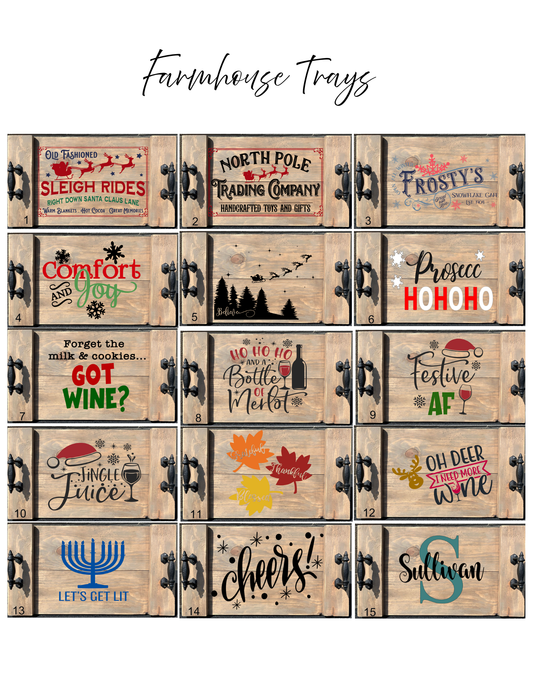 Farmhouse Trays
OLD FASHIONED
SLEIGH RIDES
RIGHT DOWN SANTA CLAUS LANE
WARM BLANKETS HOT COCOA GREAT MEMORIES
1
NORTH POLE
TRADING COMPANY
HANDCRAFTED TOYS AND GIFTS
2
FROSTY'S
SNOWFLAKE CAFE
3
Comfort
AND Joy
4
Believe
5
Prosecc
HOHOHO
6
Forget the
milk & cookies...
GOT
WINE?
7
HO HO HO
AND A
Bottle
OF
Merlot
8
Festive
AF
9
JINGLE
Juice
10
Thankful
11
OH DEER
I NEED MORE
Wine
12
LET'S GET LIT
13
cheers!
14
S
Sullivan
15